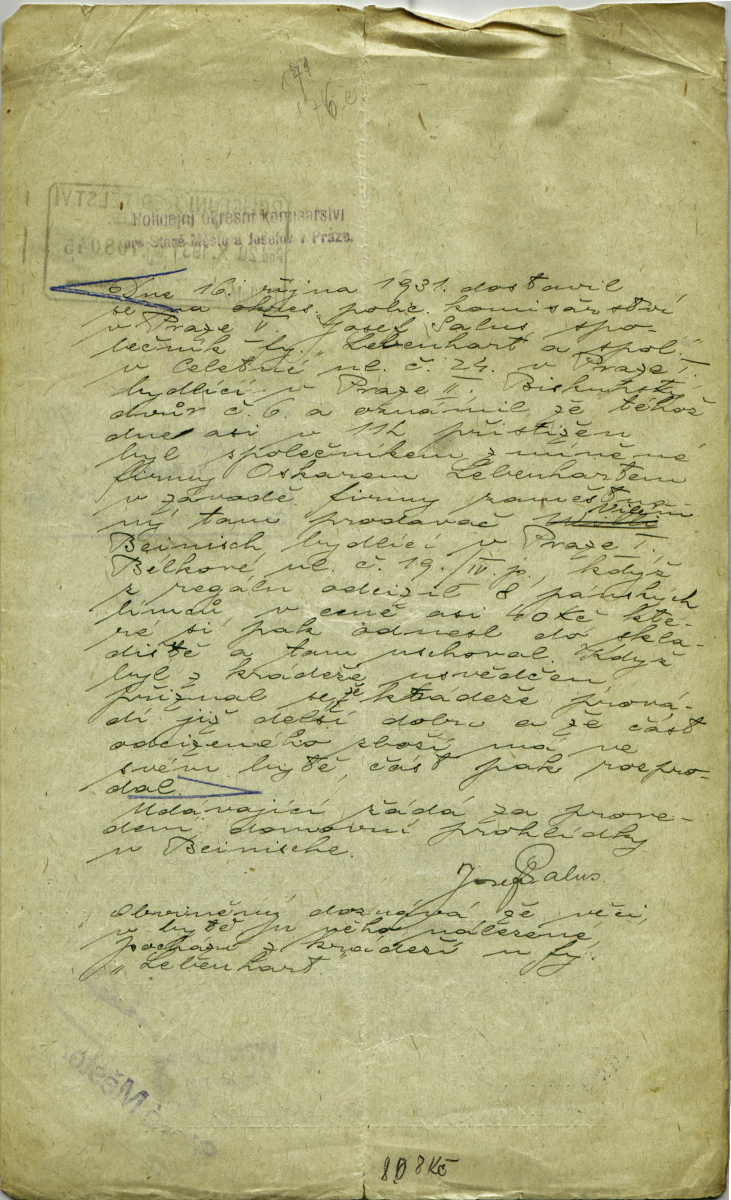 Policejní okresní komisařství
pro Staré Město a Josefov v Praze.
Dne 16. října 1931. dostavil
se na okres. polic. komisařství
v Praze V. Josef Salus, spo-
lečník fy. „Lebenhart a spol."
v Celetné ul. č. 24. v Praze I.
bydlící v Praze II, Biskupský
dvůr č. 6. a oznámil, že téhož
dne asi v 11h přistižen
byl společníkem zmíněné
firmy Oskarem Lebenhartem
v závodě firmy zaměstna-
ný tam prodavač Vilém
Beinisch, bydlící v Praze I.
Bílkové ul. č. 19./IV p., když
z regálu odcizil 8 pánských
límců v ceně asi 40 Kč kte-
ré si pak odnesl do skla-
diště a tam uschoval. Když
byl z krádeže usvědčen,
přiznal se, že krádeže prová-
dí již delší dobu a že část
odcizeného zboží má ve
svém bytě, část pak rozpro-
dal.
Udávající žádá za prove-
dení domovní prohlídky
u Beinische.
Josef Salus
Obviněný doznává, že věci,
v bytě u něho nalezené,
pochází z krádeží u fy.
„Lebenhart"
8 Kč